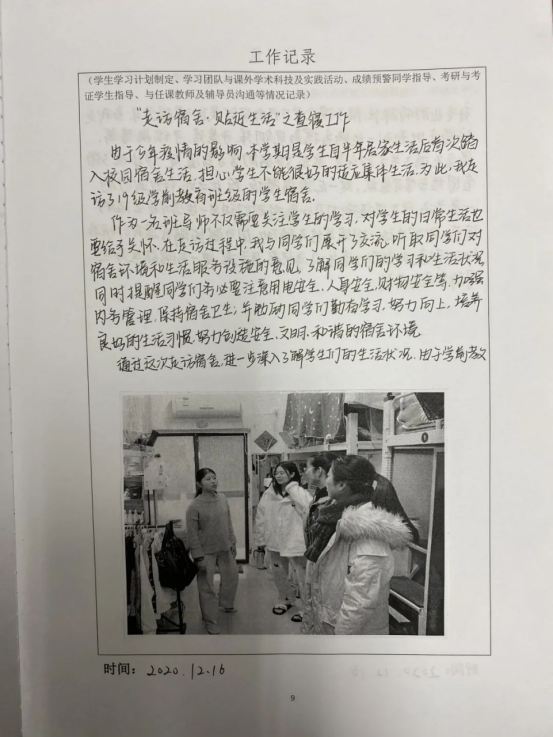 工作记录
（学生学习计划制定、学习团队与课外学术科技及实践活动、成绩预警同学指导、考研与考
证学生指导、与任课教师及辅导员沟通等情况记录）
“走访宿舍·贴近生活”之查寝工作
由于今年疫情的影响,本学期是学生自半年居家生活后首次踏
入校园宿舍生活,担心学生不能很好的适应集体生活.为此,我走
访了19级学前教育班级的学生宿舍.
作为一名班导师不仅需要关注学生的学习,对学生的日常生活也
要给予关怀.在走访过程中,我与同学们展开了交流,听取同学们对
宿舍环境和生活服务设施的意见,了解同学们的学习和生活状况
同时提醒同学们务必要注意用电安全,人身安全,财物安全等,加强
内务管理,保持宿舍卫生;并勉励同学们勤奋学习,努力向上,培养
良好的生活习惯,努力创造安全,文明,和谐的宿舍环境.
通过这次走访宿舍,进一步深入了解学生们的生活状况.由于学前教
时间：2020.12.16
9